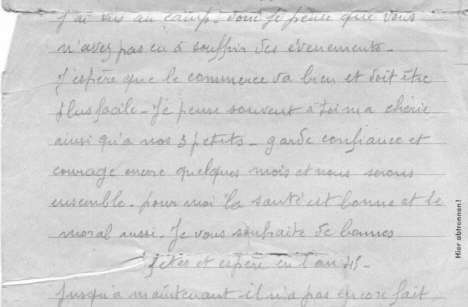 j'ai vus au camp. donc je pense que vous
n'avez pas eu à souffrir des évenements.
J'espère que le commerce va bien et doit être
plus facile. Je pense souvent à toi ma chérie
ainsi qu'a nos 3 petits. garde confiance et
courage encore quelques mois et nous serons
ensemble. pour moi la santé est bonne et le
moral aussi. Je vous souhaite de bonnes
fêtes et espère en l'an
Jusqu'à maintenant il n'a pas encore fait
Hier abtrennen!